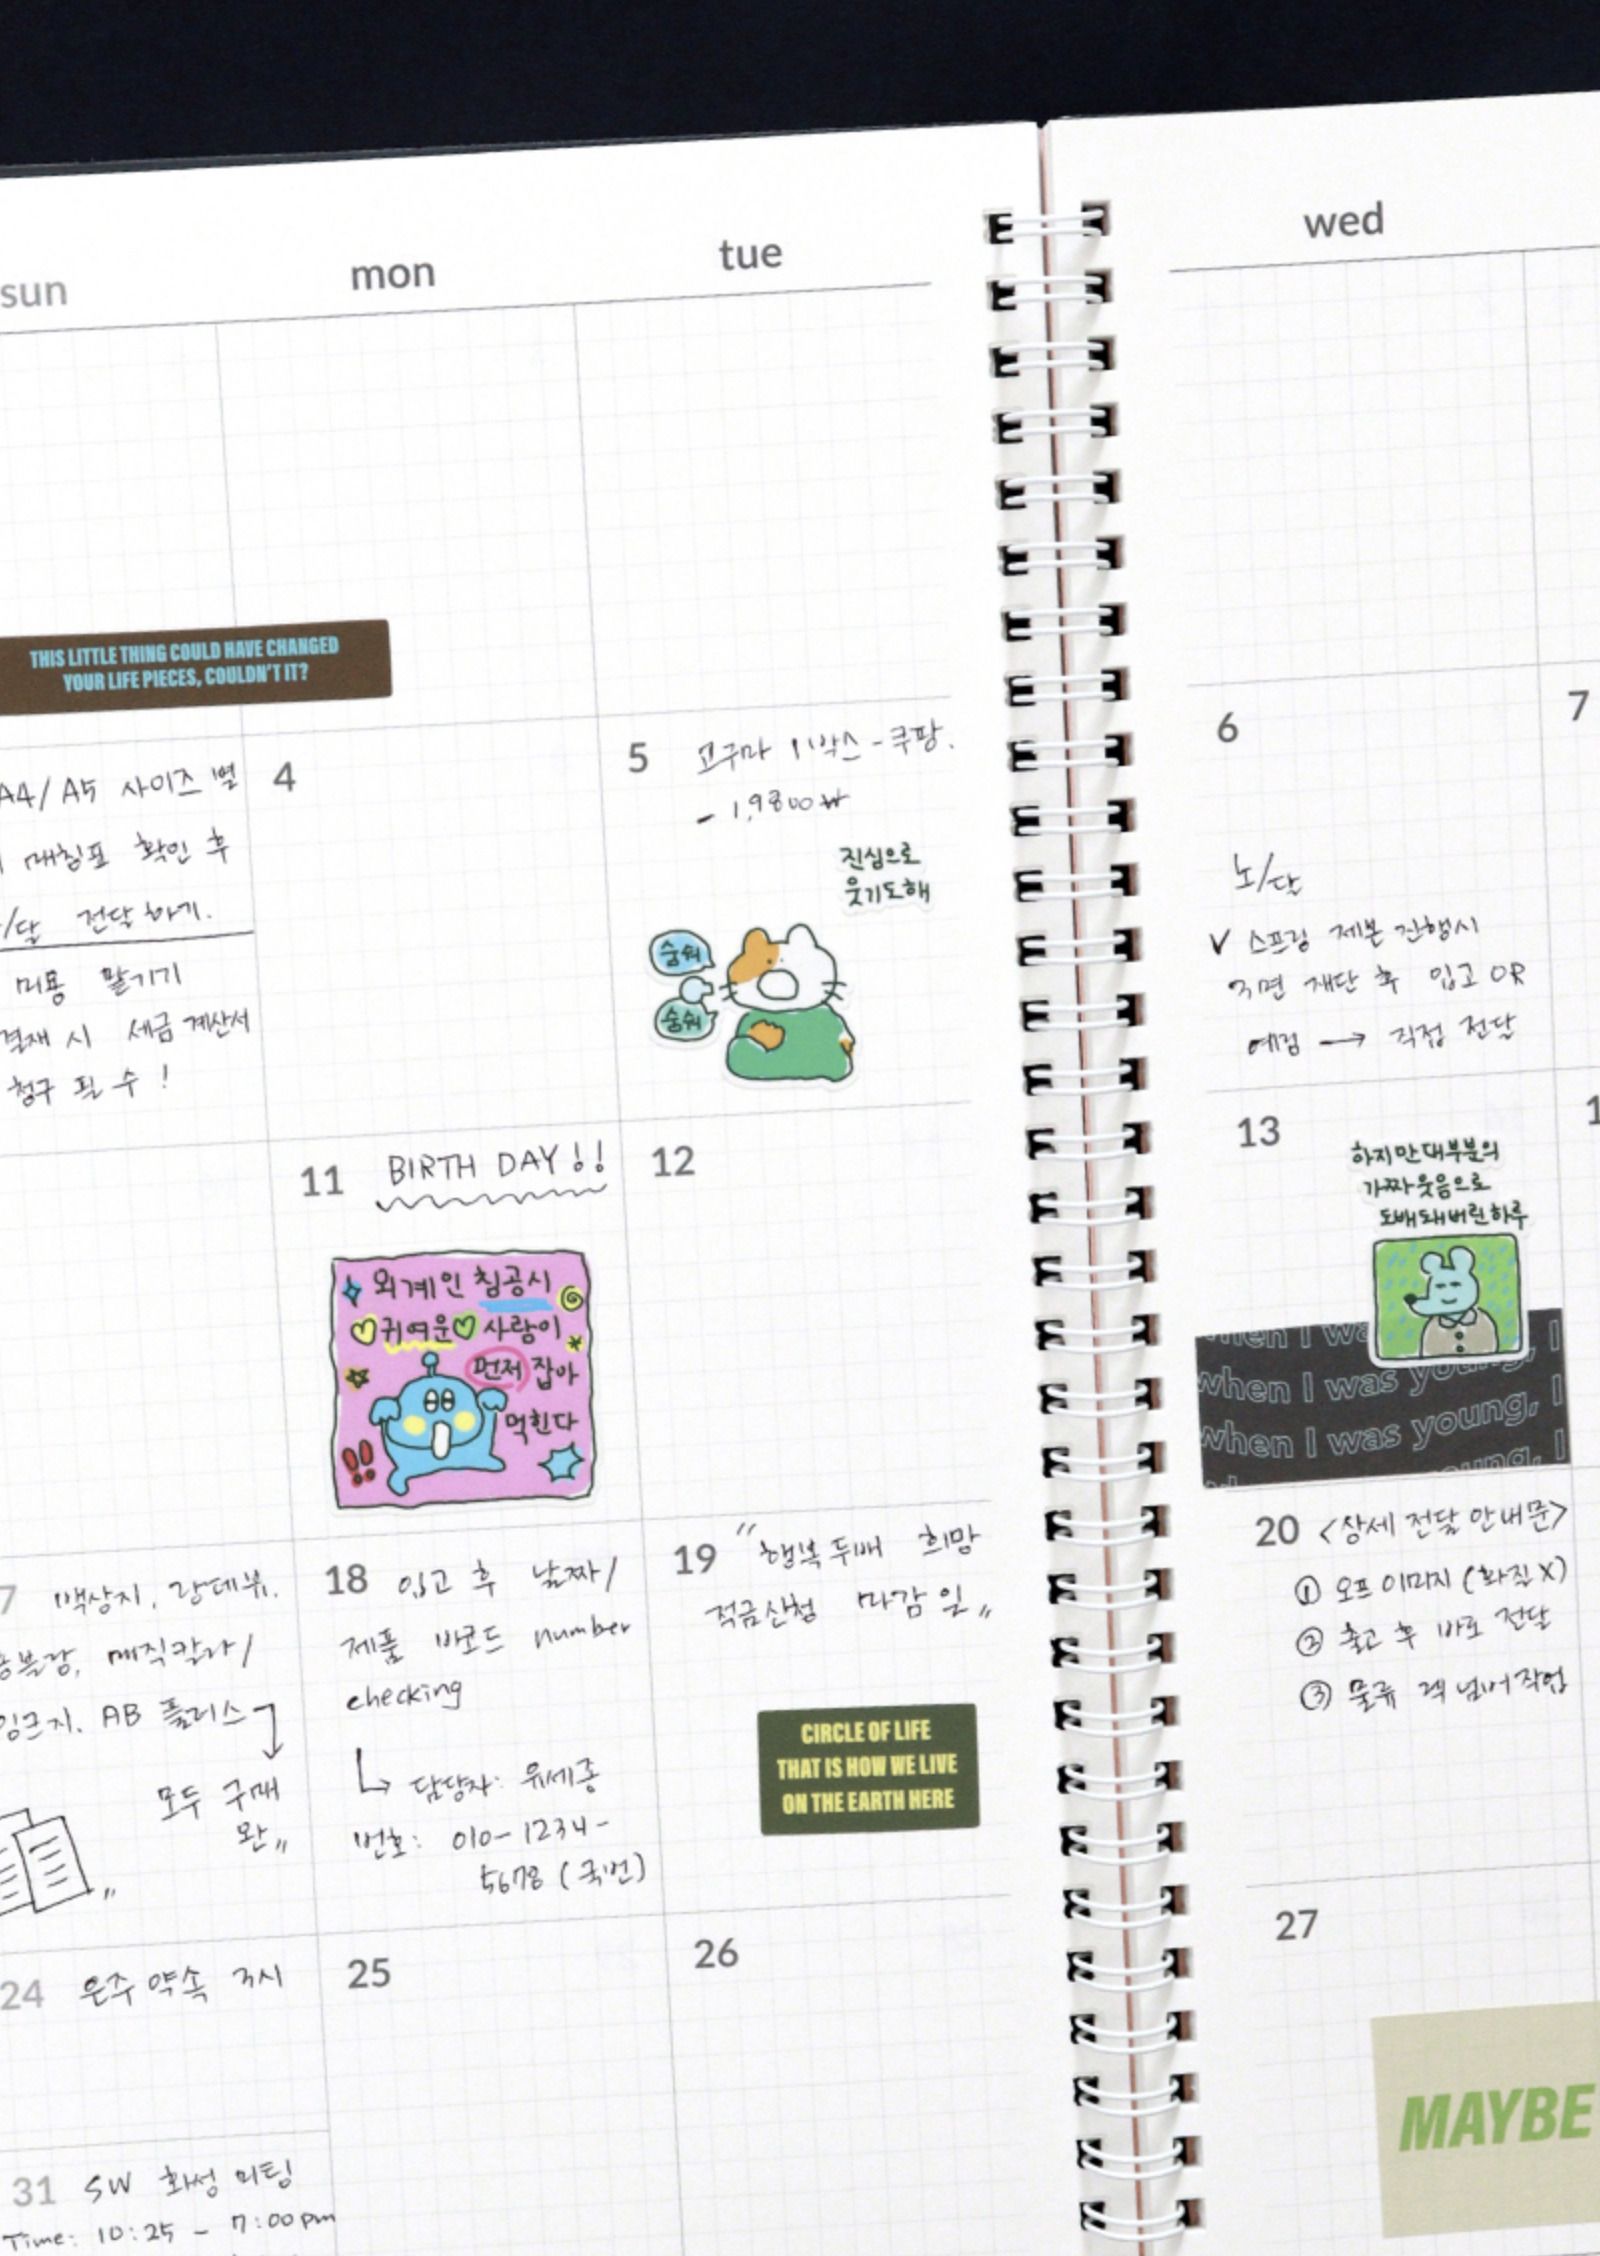 sun
mon
tue
wed
THIS LITTLE THING COULD HAVE CHANGED
YOUR LIFE PIECES, COULDN'T IT?
A4/A5 사이즈 별
매칭표 확인 후
/달 전달하기.
미용 맡기기
결재 시 세금계산서
청구 필수!
4
5 고구마 11박스-쿠팡.
- 1,9800₩
진심으로
웃기도해
숨쉬
숨쉬
6
노/달
✓ 스프링 제본 진행시
3면 재단 후 입고 OR
예림 → 직접 전달
7
11 BIRTH DAY!!
외계인 침공시
귀여운 사람이
먼저 잡아
먹힌다
12
13
하지만대부분의
가짜웃음으로
도배돼버린하루
when I was young, I
when I was young, I
when I was young, I
7 백상지, 랑데뷰,
매직칼라/
AB 플러스
모두 구매
완〃
18 입고 후 날짜/
제품 바코드 number
checking
↳ 담당자: 유세종
번호: 010-1234-
5678 (국번)
19 "행복두배 희망
적금신청 마감일〃
CIRCLE OF LIFE
THAT IS HOW WE LIVE
ON THE EARTH HERE
20 <상세 전달 안내문>
① 오프 이미지 (화질X)
② 출고 후 바로 전달
③ 물류 랙 넘버 작업
24 은주 약속 3시
25
26
27
MAYBE
31 SW 화성 미팅
Time: 10:25 - 7:00pm